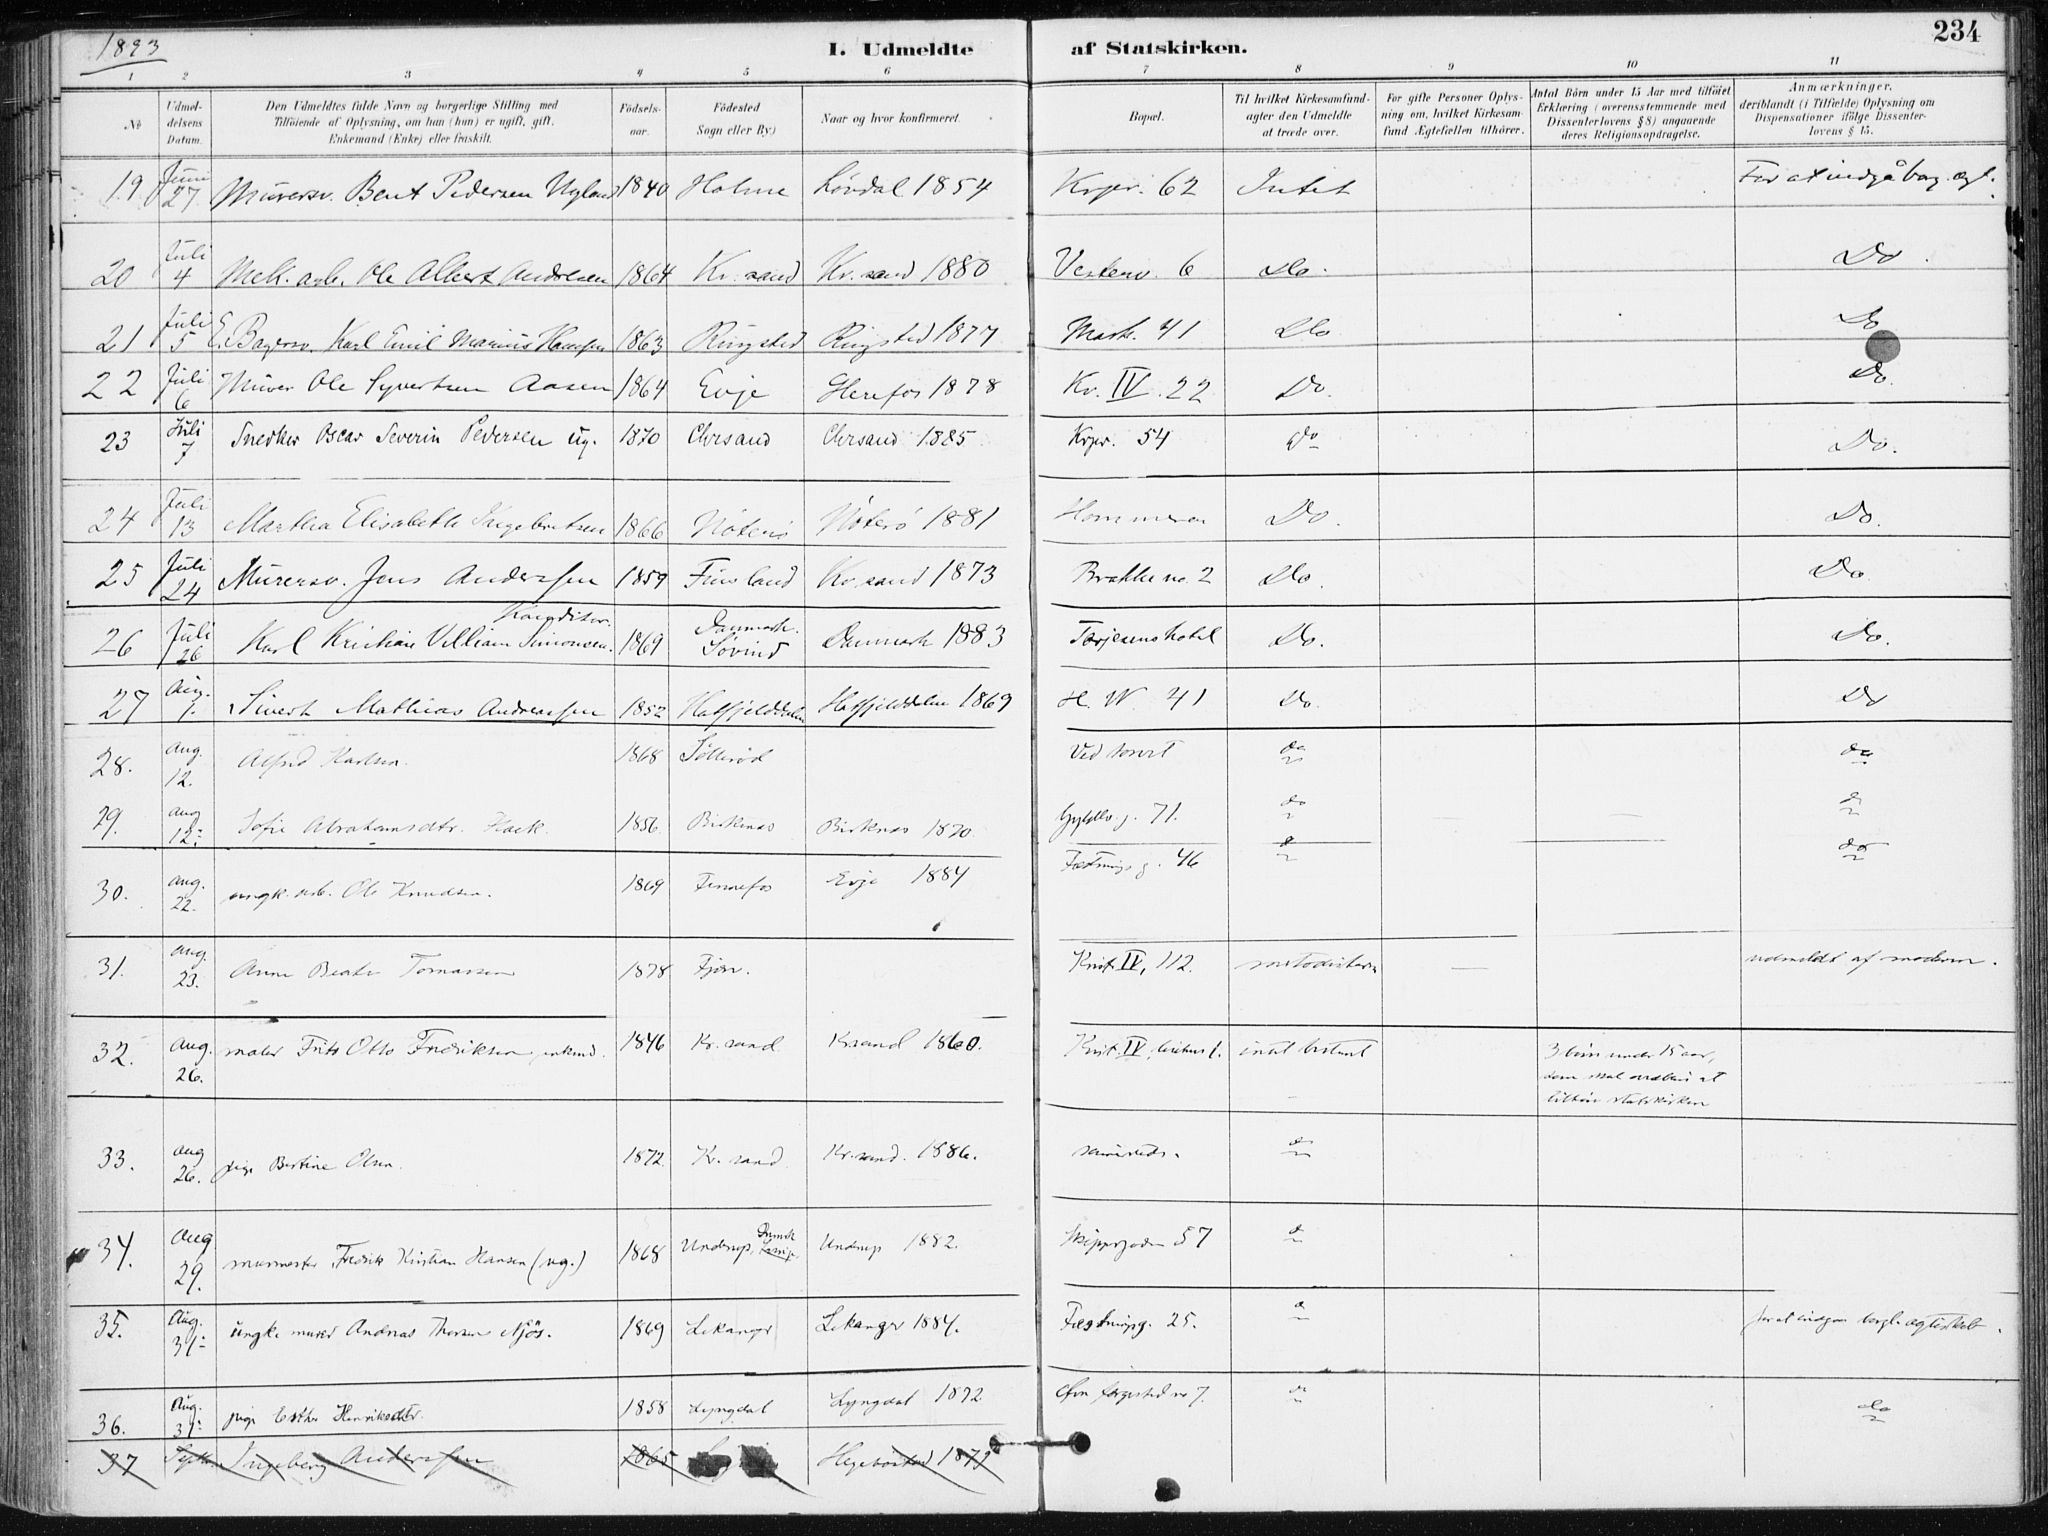 1893
I. Udmeldte af Statskirken.
234
1 2 3 4 5 6 7 8 9 10 11
No
Udmeldelsens Datum.
Den Udmeldtes fulde Navn og borgerlige Stilling med
Tilföiende af Oplysning, om han (hun) er ugift, gift,
Enkemand (Enke) eller fraskilt.
Födsels-
aar.
Födested
Sogn eller By)
Naar og hvor konfirmeret.
Bopæl.
Til hvilket Kirkesamfund-
agter den Udmeldte
at træde over.
For gifte Personer Oplys-
ning om, hvilket Kirkesam-
fund Ægtefællen tilhörer.
Antal Börn under 15 Aar med tilföiet
Erklæring (overensstemmende med
Dissenterlovens § 8) angaaende
deres Religionsopdragelse.
Anmærkninger,
deriblandt (i Tilfælde) Oplysning om
Dispensationer ifölge Dissenter-
lovens § 15.
19. Juni 27 Murersv. Bent Pedersen Ugland 1840 Holme Lövdal 1854 Krpr. 62 Intet For at indgå borg. ægt.
20 Juli 4 Mek. arb. Ole Albert Andresen 1864 Kr.sand Kr.sand 1880 Vesterv. 6 Do. Do.
21 Juli 5 Bagersv. Karl Emil Marius Hansen 1863 Ringsted Ringsted 1877 Mark. 41 Do Do
22 Juli 6 Murer Ole Syvertsen Aasen 1864 Evje Herefos 1878 Kv. IV. 22 Do. Do.
23 Juli 7 Snedker Oscar Severin Pedersen ug. 1870 Chrsand Chrsand 1885 Krpr. 54 Do Do.
24 Juli 13 Martha Elisabeth Ingebretsen 1866 Nöterö Nöterö 1881 Hommeren Do. Do.
25 Juli 24 Murersv. Jens Anderssen 1859 Finsland Kr.sand 1873 Brække no. 2 Do. Do.
26 Juli 26 Karl Kristian Villiam Simonsen. Konditor. 1869 Danmark. Søvind Danmark 1883 Terjesens hotel Do. Do.
27 Aug. 1. Sivert Mathias Andreassen 1852 Hatfjelddalen Hatfjelddalen 1869 H. W. 41 Do. Do
28. Aug. 12. Alfred Karlsen. 1868 Ved torvet do do
29. Aug 12. Sofie Abrahamsdtr. 1856 Birkenes Birkenes 1870 Gyldlv. g. 71. do — do
30. Aug. 22. ungk. arb. Ole Knudsen. 1869 Fennefos Evje 1884 Festnings g. 46 do do
31. Aug. 23. Anne Beate Tomassen 1878 Fjære. Kvt. IV, 112. metodisterne — udmeldt af moderen.
32. Aug. 26. maler Frits Otto Fredriksen, enkmd. 1846 Kr.sand Krsand 1860. Kvt. IV, intet bestemt 3 børn under 15 aar,
som skal vedblive at
tilhøre statskirken
33. Aug 26. pige Bertine Olsen. 1872. Kr. sand Kr.sand. 1886. sammesteds. do
34. Aug 29. murmester Fredrik Kristian Hansen (ug.) 1868 Underup, Underup 1882. Skippergaden 57 do
35. Aug. 31. ungk. murer Andreas Thorsen Njøs. 1869 Lekanger Lekanger 1884. Festningsg. 25. do for at indgaa borgl. ægteskab.
36. Aug. 31. pige Esther Henriksdtr. 1858 Lyngdal Lyngdal 1872. no 7. do do
37 Sept. Ingeborg Anderssen 1865 Hegebostad 1879